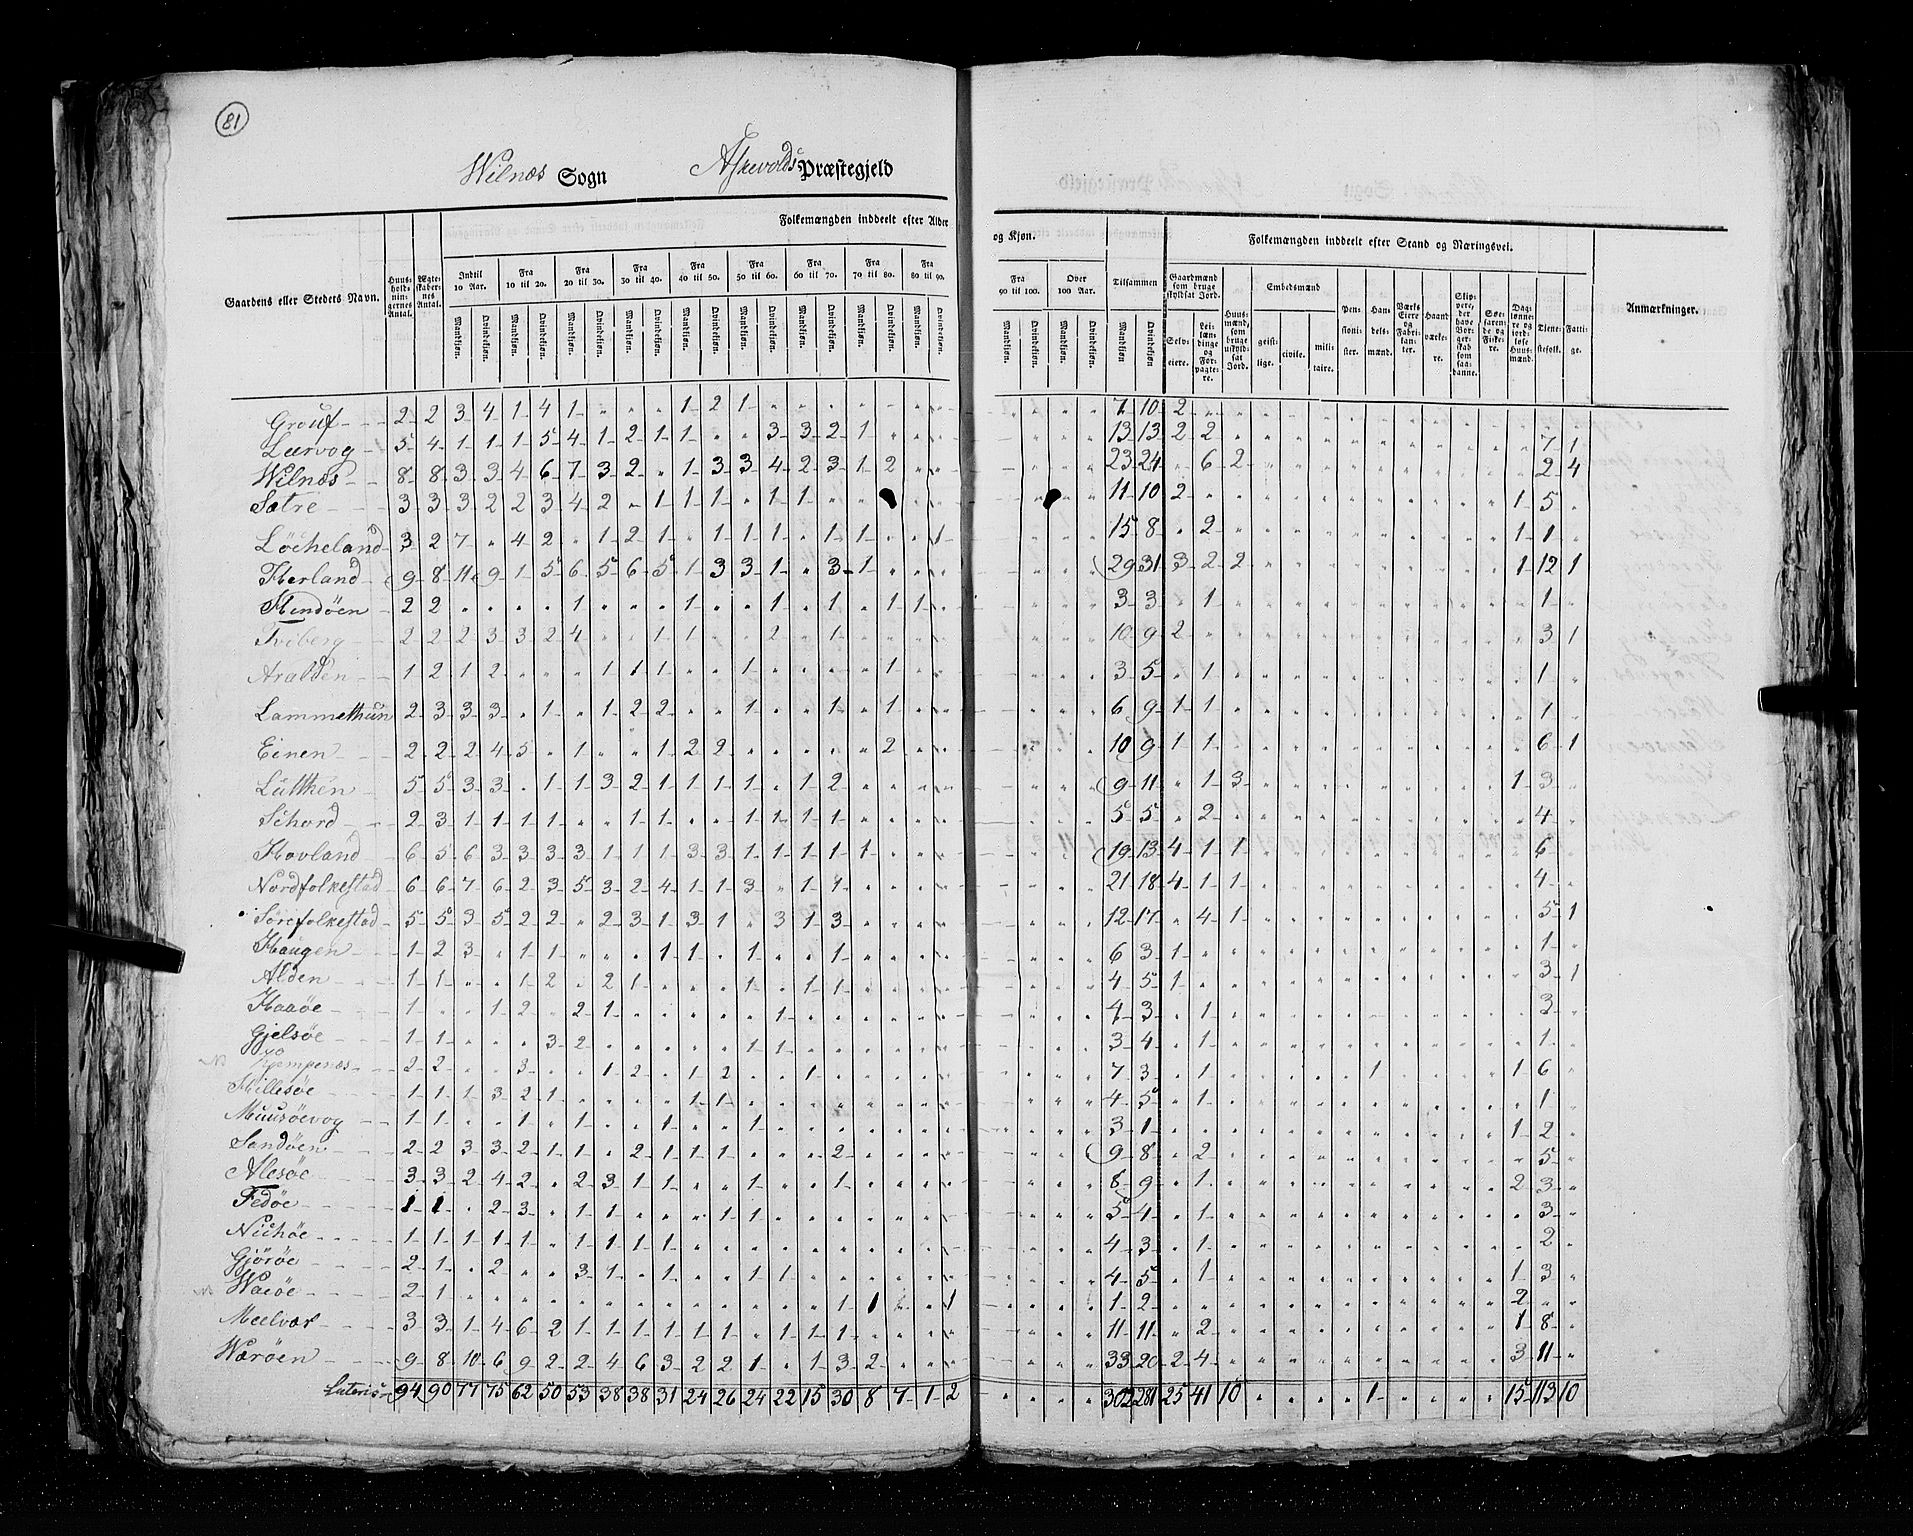 81
Wilnæs Sogn Askevolds Præstegjeld
Folkemængden inddeelt efter Alder og Kjøn. Folkemængden inddeelt efter Stand og Næringsvei.
Gaardens eller Stedets Navn. Huusholdningernes Antal. Ægteskabernes Antal. Indtil 10 Aar. Fra 10 til 20. Fra 20 til 30. Fra 30 til 40. Fra 40 til 50. Fra 50 til 60. Fra 60 til 70. Fra 70 til 80. Fra 80 til 90. Fra 90 til 100. Over 100 Aar. Tilsammen Gaardmænd som bruge skyldsat Jord. Huusmænd, som bruge uskyldsat Jord. Embedsmænd Pensionister. Handelsmænd. Værks Eiere og Fabrikanter. Haandværkere. Skippere, der have Borgerskab som saadanne. Søefarende og Fiskere. Daglønnere og jordløse Huusmænd. Tjenestefolk. Fattige. Anmærkninger.
Mandkjøn. Qvindekjøn. Mandkjøn. Qvindekjøn. Mandkjøn. Qvindekjøn. Mandkjøn. Qvindekjøn. Mandkjøn. Qvindekjøn. Mandkjøn. Qvindekjøn. Mandkjøn. Qvindekjøn. Mandkjøn. Qvindekjøn. Mandkjøn. Qvindekjøn. Mandkjøn. Qvindekjøn. Mandkjøn. Qvindekjøn. Mandkjøn Qvindekjøn. Selveiere. Leilændinge og Forpagtere. geistlige. civile. militaire.
Grouf 2 2 3 4 1 4 1 " " " 1 2 1 " " " " " " " " " " " 7 10 2
Lervog 5 4 1 1 1 5 4 1 2 1 1 " " 3 3 2 1 " " " 13 13 2 2 7 1
Wilnæs 8 8 3 3 4 6 7 3 2 " 1 3 3 4 2 3 1 2 " " 23 24 " 6 2 2 4
Sætre 3 3 3 2 2 3 4 2 " 1 1 1 " 1 1 " " " " 11 10 2 1 5
Løcheland 3 2 7 " 4 2 " 1 2 1 " 1 1 1 " 1 1 " " 1 15 8 " 2 1 1
Herland 9 8 11 9 1 5 6 5 6 5 1 3 3 1 " 3 1 " " " 29 31 3 2 2 1 12 1
Hendøen 2 2 " " " " 1 " " " 1 " " 1 " 1 " 1 1 " 3 3 " 1 1
Tviberg 2 2 2 3 3 2 4 " " 1 1 " " 2 " 1 " " " " 10 9 2 3 1
Aralden 1 2 1 2 " " " 1 1 1 " " 1 " " " " 1 " " 3 5 " 1 1
Lammethun 2 3 3 3 " 1 " 1 2 2 " " 1 " " 1 " 1 " " 6 9 1 1 1
Einen 2 2 2 4 5 " 1 " " 1 2 2 " " " " " 2 " " 10 9 1 1 6 1
Lütken 5 5 3 3 " 1 1 3 2 1 1 1 1 " 1 2 " " " " 9 11 " 1 3 1 3
Schord 2 3 1 1 1 1 " " 1 1 " " 1 1 1 1 " " " " 5 5 " 2 4
Hovland 6 5 6 3 3 3 3 1 1 1 3 3 1 1 1 1 1 " " " 19 13 4 1 1 6
Nordfolkestad 6 6 7 6 2 3 5 3 2 4 1 1 3 " 1 1 " " " " 21 18 4 1 1 4
Sørefolkestad 5 5 3 5 2 2 " 2 3 1 3 1 " 3 1 3 " " " " 12 17 " 4 1 5 1
Haugen 1 2 3 " 1 1 " " " 1 1 " 1 " " 1 " " " " 6 3 1 1
Alden 1 1 " " 1 2 " 2 1 " " " 1 " 1 1 " " " " 4 5 1 3 1
Haaøe 1 " " 1 2 " 2 1 " " " " " 1 " " " " " " 4 3 " 1 3
Gjelsøe 1 1 " " " 3 2 " " " " " 1 1 " " " " " " 3 4 " 1 1
Kempenæs 2 2 " " 3 " " 1 2 " 1 2 " " 1 " " " " " 7 3 " 1 1 1 6
Hillesøe 1 1 1 3 2 1 " " " " 1 1 " " " " " " " " 4 5 " 1 1
Muusøevog 1 1 " " 1 " 1 " " 1 " " 1 " " " " " " " 3 1 " 1 2
Sandøen 2 2 3 3 2 1 1 " 2 1 1 1 " " " 2 " " " " 9 8 " 2 5
Alesøe 3 3 2 4 2 " 2 3 1 1 " " 1 " " 1 " " " " 8 9 " 1 2 3
Fedøe 1 1 " 2 3 " 1 1 " " " 1 1 " " " " " " " 5 4 " 1 3
Nichøe 1 1 1 1 1 " 1 1 1 1 " " " " " " " " " " 4 3 " 1 2
Gjörøe 2 1 " 2 " " 3 1 " 1 " " 1 1 " " " " " " 4 5 " 1 1 3
Waøe 2 1 " " " " " " " " " " " " " 1 1 " " 1 1 2 2
Meelvær 3 3 1 4 6 2 1 1 1 1 1 1 " 1 1 1 " " " " 11 11 " 2 1 8
Wærøen 9 8 10 6 9 2 2 4 6 3 2 2 1 " 1 3 2 " " " 33 20 2 4 3 11
Lateris 94 90 77 75 62 50 53 38 38 31 24 26 24 22 15 30 8 7 1 2 302 281 25 41 10 1 15 113 10